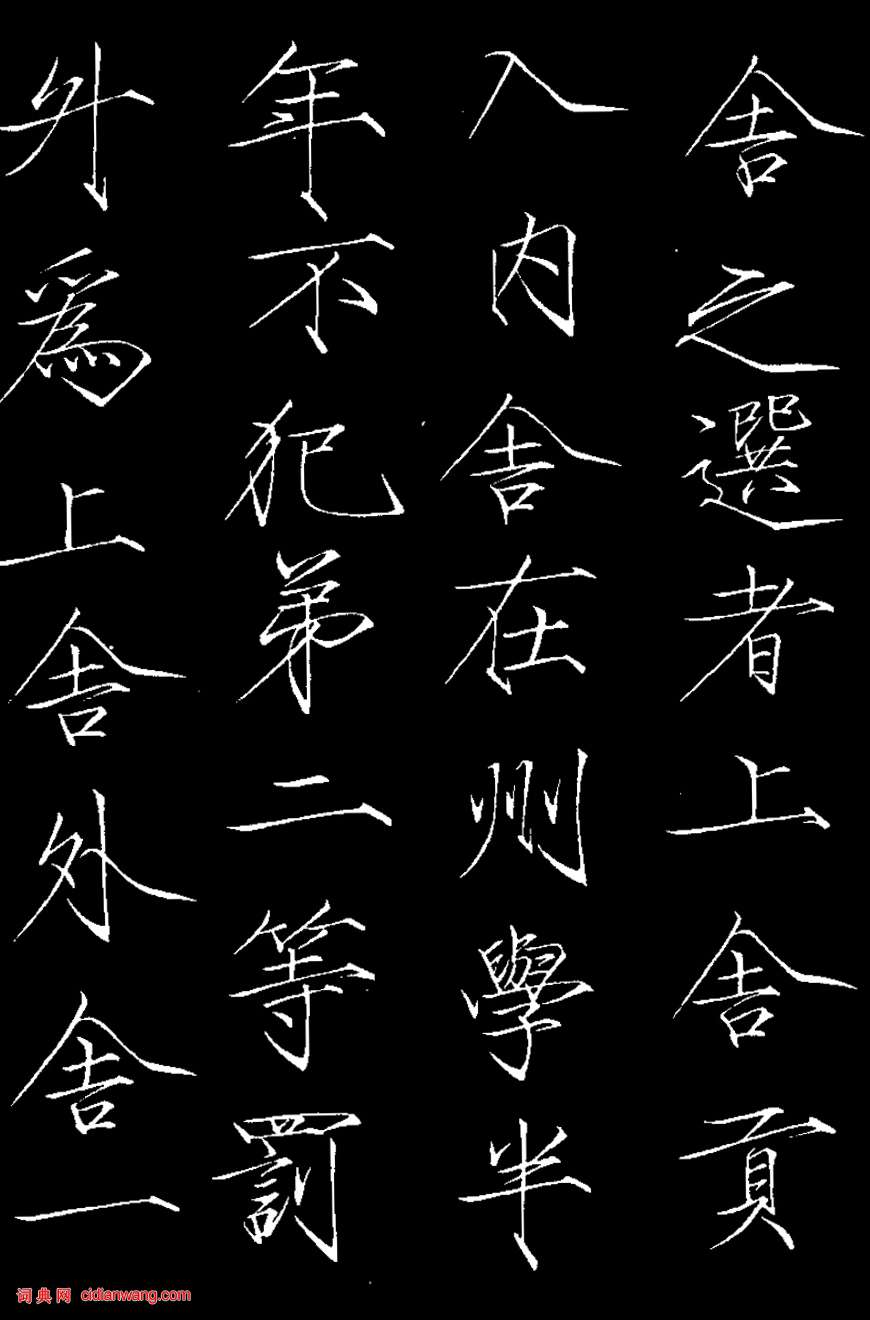 舍之選者上舍貢
入内舍在州學半
年不犯弟二等罰
升爲上舍外舍一
词典网 cidianwang.com